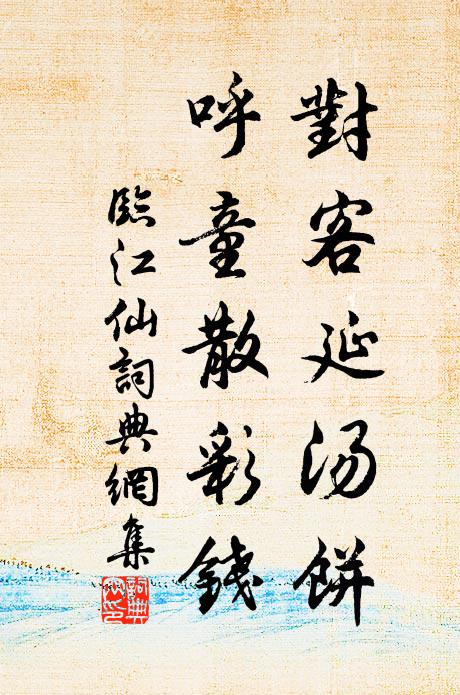 對客延湯餅
呼童散彩錢
臨江仙詞典網集
詞典